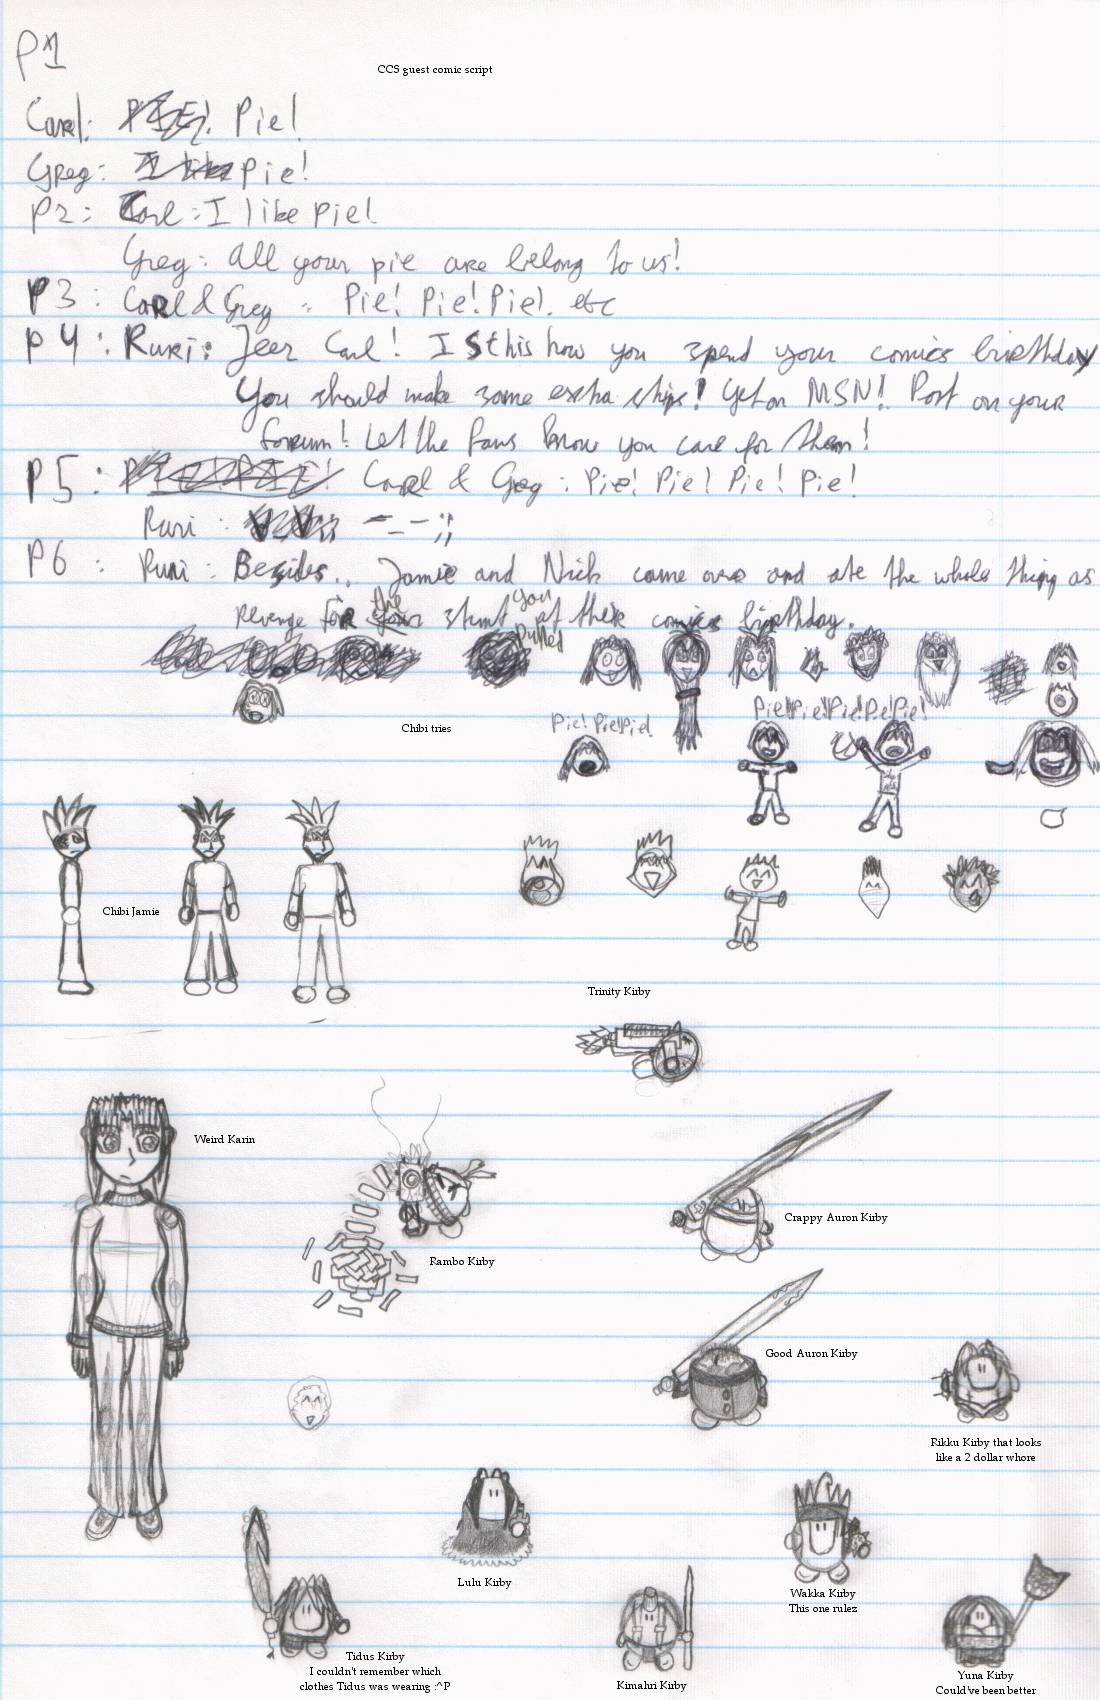 P1
CCS guest comic script
Carl: Pie!
Greg: Pie!
P2: Carl: I like Pie!
Greg: All your pie are belong to us!
P3: Carl & Greg: Pie! Pie! Pie!. etc
P4: Ruri: Jeez Carl! Is this how you spend your comics birthday
You should make some extra strips! Get on MSN! Post on your
forum! Let the fans know you care for them!
P5: Carl & Greg: Pie! Pie! Pie! Pie!
Ruri: -_-;;
P6: Ruri: Besides.. Jamie and Nick came over and ate the whole thing as
revenge for the stunt you pulled at their comics birthday.
Chibi tries
Pie! Pie! Pie!
Pie! Pie! Pie! Pie! Pie!
Chibi Jamie
Trinity Kirby
Weird Karin
Crappy Auron Kirby
Rambo Kirby
Good Auron Kirby
Rikku Kirby that looks
like a 2 dollar whore
Lulu Kirby
Wakka Kirby
This one rulez
Tidus Kirby
I couldn't remember which
clothes Tidus was wearing :^P
Kimahri Kirby
Yuna Kirby
Could've been better